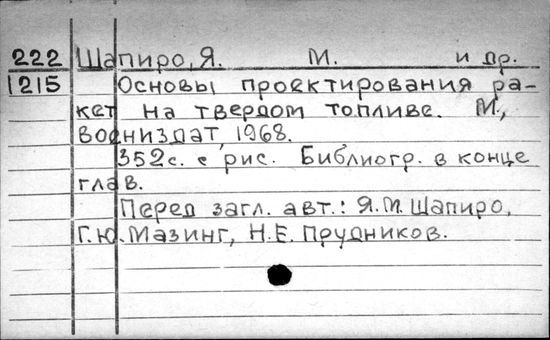 222 Шапиро, Я. М. и др.
1215 Основы проектирования ра-
кет на твердом топливе. М.,
Воениздат, 1968.
352с. с рис. Библиогр. в конце
глав.
Перед загл. авт.: Я.М. Шапиро,
Г.Ю. Мазинг, Н.Е. Прудников.